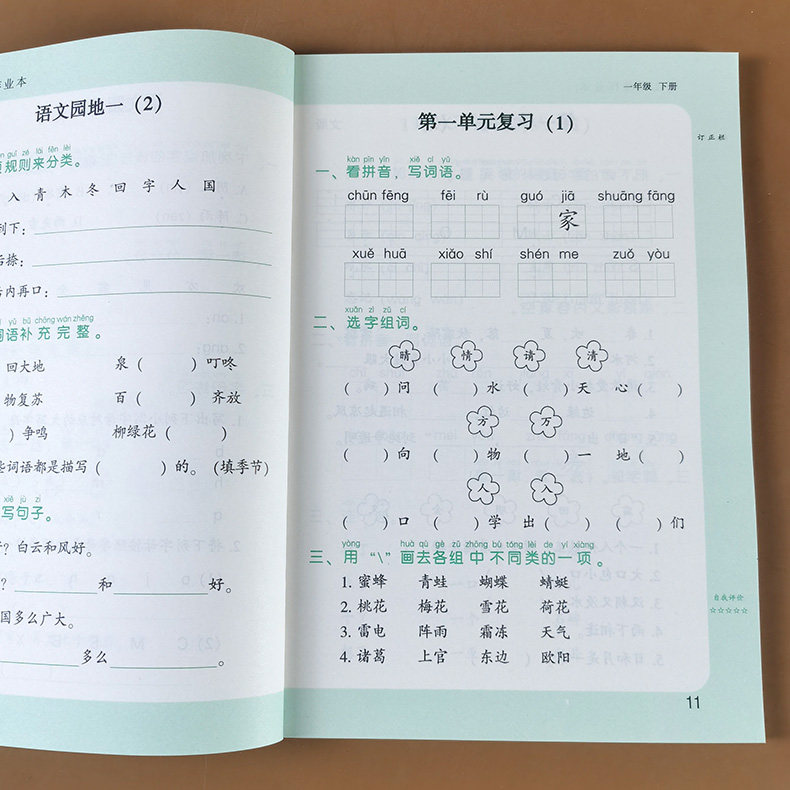 业本
语文园地一（2）
guī zé lái fēn lèi
规则来分类。
入 青 木 冬 回 字 人 国
到下：
后捺：
后内再口：
yǔ bǔ chōng wán zhěng
词语补充完整。
回大地 泉（ ）叮咚
物复苏 百（ ）齐放
）争鸣 柳绿花（ ）
些词语都是描写（ ）的。（填季节）
xiě jù zi
写句子。
？白云和风好。
？ 和 好。
国多么广大。
多么 。
一年级 下册
第一单元复习（1）
订正栏
kàn pīn yīn xiě cí yǔ
一、看拼音，写词语。
chūn fēng fēi rù guó jiā shuāng fāng
家
xuě huā xiǎo shí shén me zuǒ yòu
xuǎn zì zǔ cí
二、选字组词。
晴 情 请 清
（ ）问 （ ）水 （ ）天 心（ ）
方 万
（ ）向 （ ）物 （ ）一 地（ ）
人 入
（ ）口 （ ）学 出（ ） （ ）们
yòng huà qù gè zǔ zhōng bù tóng lèi de yí xiàng
三、用“\”画去各组中不同类的一项。
1. 蜜蜂 青蛙 蝴蝶 蜻蜓
2. 桃花 梅花 雪花 荷花
3. 雷电 阵雨 霜冻 天气
4. 诸葛 上官 东边 欧阳
自我评价
☆☆☆☆☆
11